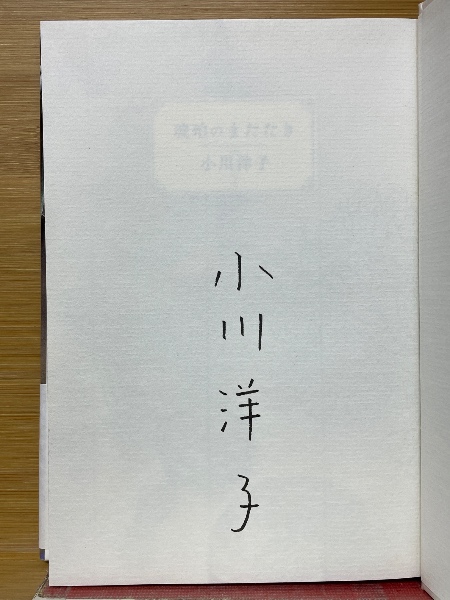 琥珀のまたたき
小川洋子
小川洋子